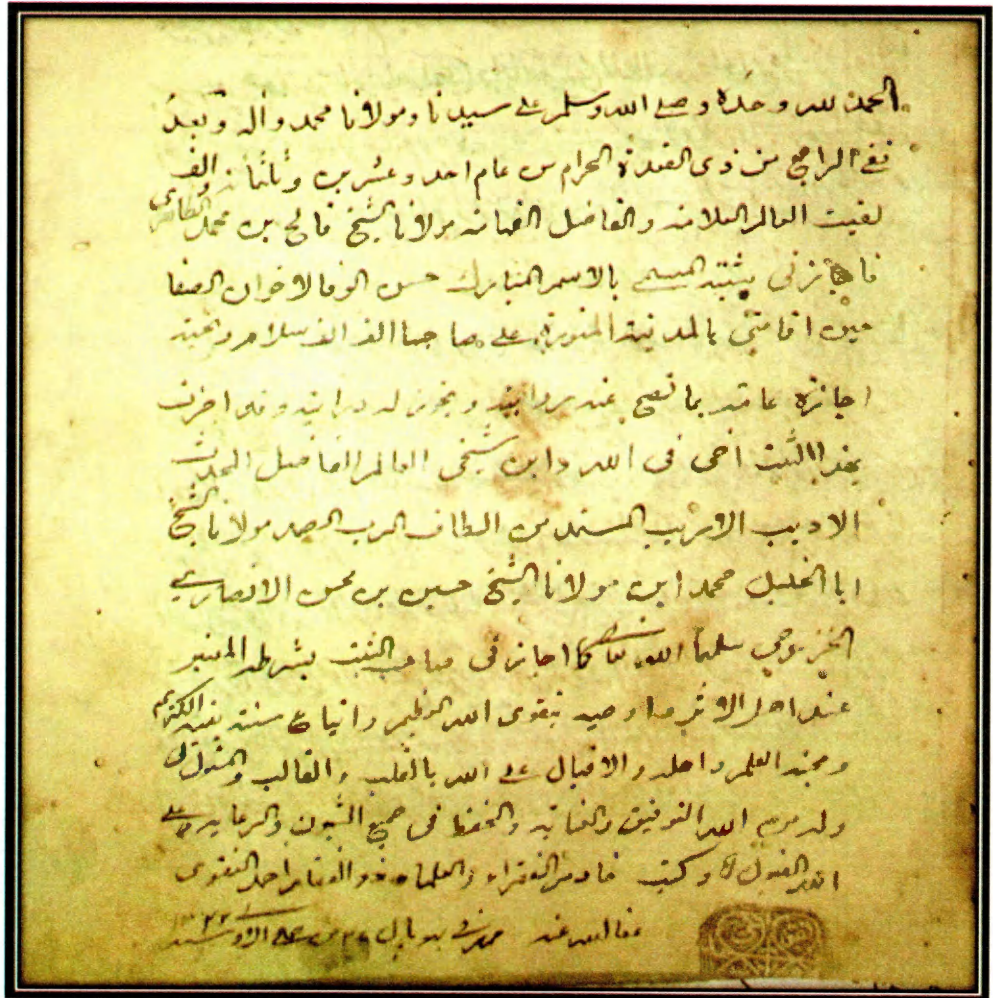 الحمد لله وحده وصلى الله وسلم على سيدنا ومولانا محمد وآله وبعد
ففي الرابع من ذى القعدة الحرام من عام احد وعشرين وثلثمائة والف
لقيت العالم العلامة والفاضل الفهامة مولانا الشيخ فالح بن محمد الظاهرى
فاجازنى بثبته المسمى بالاسم المبارك حسن الوفا لاخوان الصفا
حين اقامتى بالمدينة المنورة على صاحبها الف الف سلام وتحية
اجازة عامة بما تصح عنه روايته ويجوز له درايته وقد اجزت
بهذا الثبت اخى فى الله وابن شيخى العالم الفاضل المحدث
الاديب الاريب المستمد من الطاف الرب الصمد مولانا الشيخ
ابا الخليل محمد ابن مولانا الشيخ حسين بن محسن الانصارى
الخزرجي سلمها الله تعالى كما اجازنى صاحب الثبت بشرطه المعتبر
عند اهل الاثر واوصيه بتقوى الله العظيم واتباع سنة نبيه الكريم
ومحبة العلم واهله والاقبال على الله بالقلب والقالب والمسئول لى
وله من الله التوفيق والحفظ فى جميع الشئون والرعاية وعلى
الله القبول وكتب خادم الفقراء والعلماء احمد
عفا الله عنه